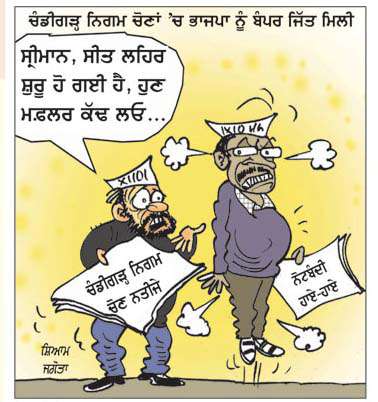 ਚੰਡੀਗੜ੍ਹ ਨਿਗਮ ਚੋਣਾਂ 'ਚ ਭਾਜਪਾ ਨੂੰ ਬੰਪਰ ਜਿੱਤ ਮਿਲੀ
ਸ੍ਰੀਮਾਨ, ਸੀਤ ਲਹਿਰ
ਸ਼ੁਰੂ ਹੋ ਗਈ ਹੈ, ਹੁਣ
ਮਫ਼ਲਰ ਕੱਢ ਲਓ...
ਚੰਡੀਗੜ੍ਹ ਨਿਗਮ
ਚੋਣ ਨਤੀਜੇ
ਨੋਟਬੰਦੀ
ਹਾਏ-ਹਾਏ
ਸ਼ਿਆਮ
ਜਗੋਤਾ